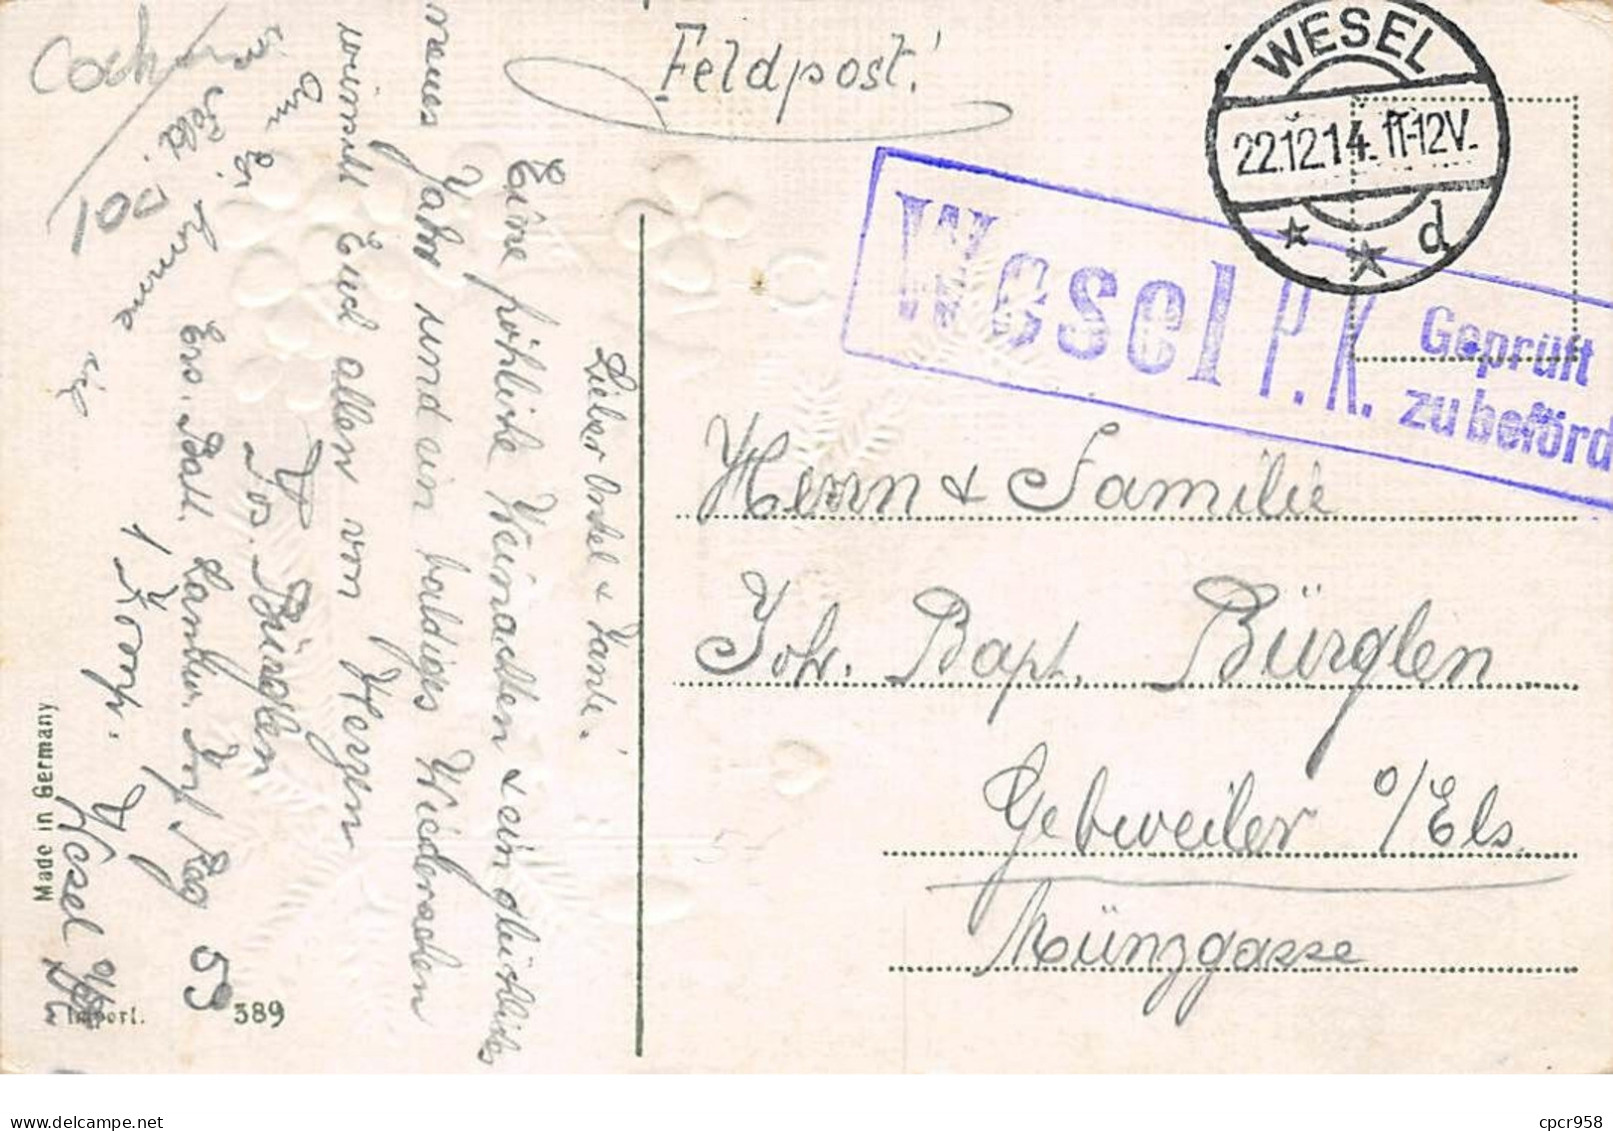 Feldpost!
WESEL
22.12.14. 11-12V.
d
Wesel P. K. Geprüft
zu beförd
Herrn & Familie
Joh. Bapt. Bürglen
Gebweiler o/Els.
Münzgasse
Lieber Onkel & Tante!
Eine fröhliche Weinachten & ein glückliches
neues Jahr und ein baldiges Wiedersehen
wünscht Euch allen von Herzen
Jos. Bürglen
Ers. Batl. Landw. Inf. Reg 53
1 Komp.
Wesel
Am 6.
komme
in
Feld.
100
Made in Germany
Import.
589
www.delcampe.net
cpcr958